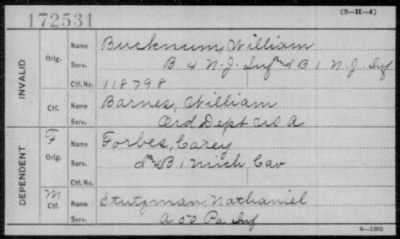 172531 (3-H-4)
INVALID Orig. Name Bucknum, William
Serv. B 4 N.J. Inf and B 1 N.J. Inf
Ctf. No. 118798
Ctf. Name Barnes, William
Serv. Ord Dept US A
DEPENDENT F Orig. Name Forbes, Carey
Serv. B 1 Mich Cav
Ctf. No.
M Ctf. Name Stutzman, Nathaniel
Serv. A 50 Pa Inf